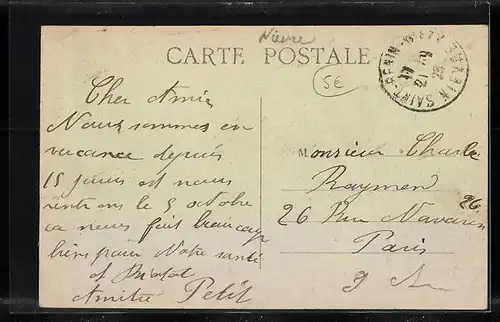 Nievre
CARTE POSTALE
5€
SAINT-BENIN-D'AZY
NIEVRE
Cher Amie
Nous sommes en
vacance depuis
15 jours et nous
rentrons le 3 octobre
ca nous fait beaucoup
bien pour Notre santé
Amitié Petit
Monsieur Charle
Raymen
26 Rue Navarin 26
Paris
9